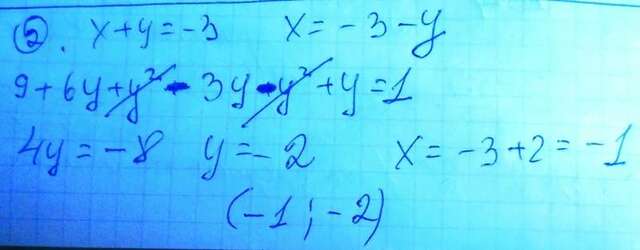 ②. x+y=-3 x=-3-y
9+6y+y²-3y-y²+y=1
4y=-8 y=-2 x=-3+2=-1
(-1;-2)